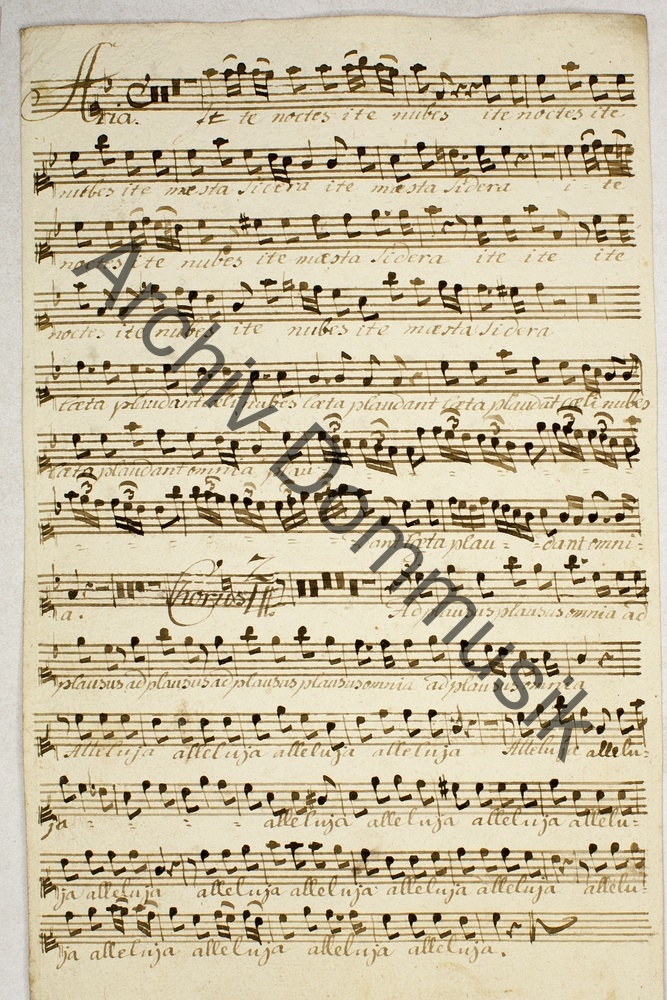 Aria. Ite noctes ite nubes ite noctes ite
nubes ite mæsta sidera ite mæsta sidera i - te
noctes ite nubes ite mæsta sidera ite ite ite
noctes ite nubes ite nubes ite mæsta sidera
læta plaudant cæli nubes læta plaudant læta plaudāt cæli nubes
læta plaudant omnia plau -
- - - - ant læta plau - - dant omni -
a. Chorus Ad plausus plausus omnia ad
plausus ad plausus ad plausus plausus omnia ad plausus omnia
Alleluja alleluja alleluja alleluja Alleluja allelu -
ja - - - alleluja alleluja alleluja allelu -
ja alleluja alleluja alleluja alleluja alleluja allelu -
ja alleluja alleluja alleluja alleluja.
Archiv Dommusik